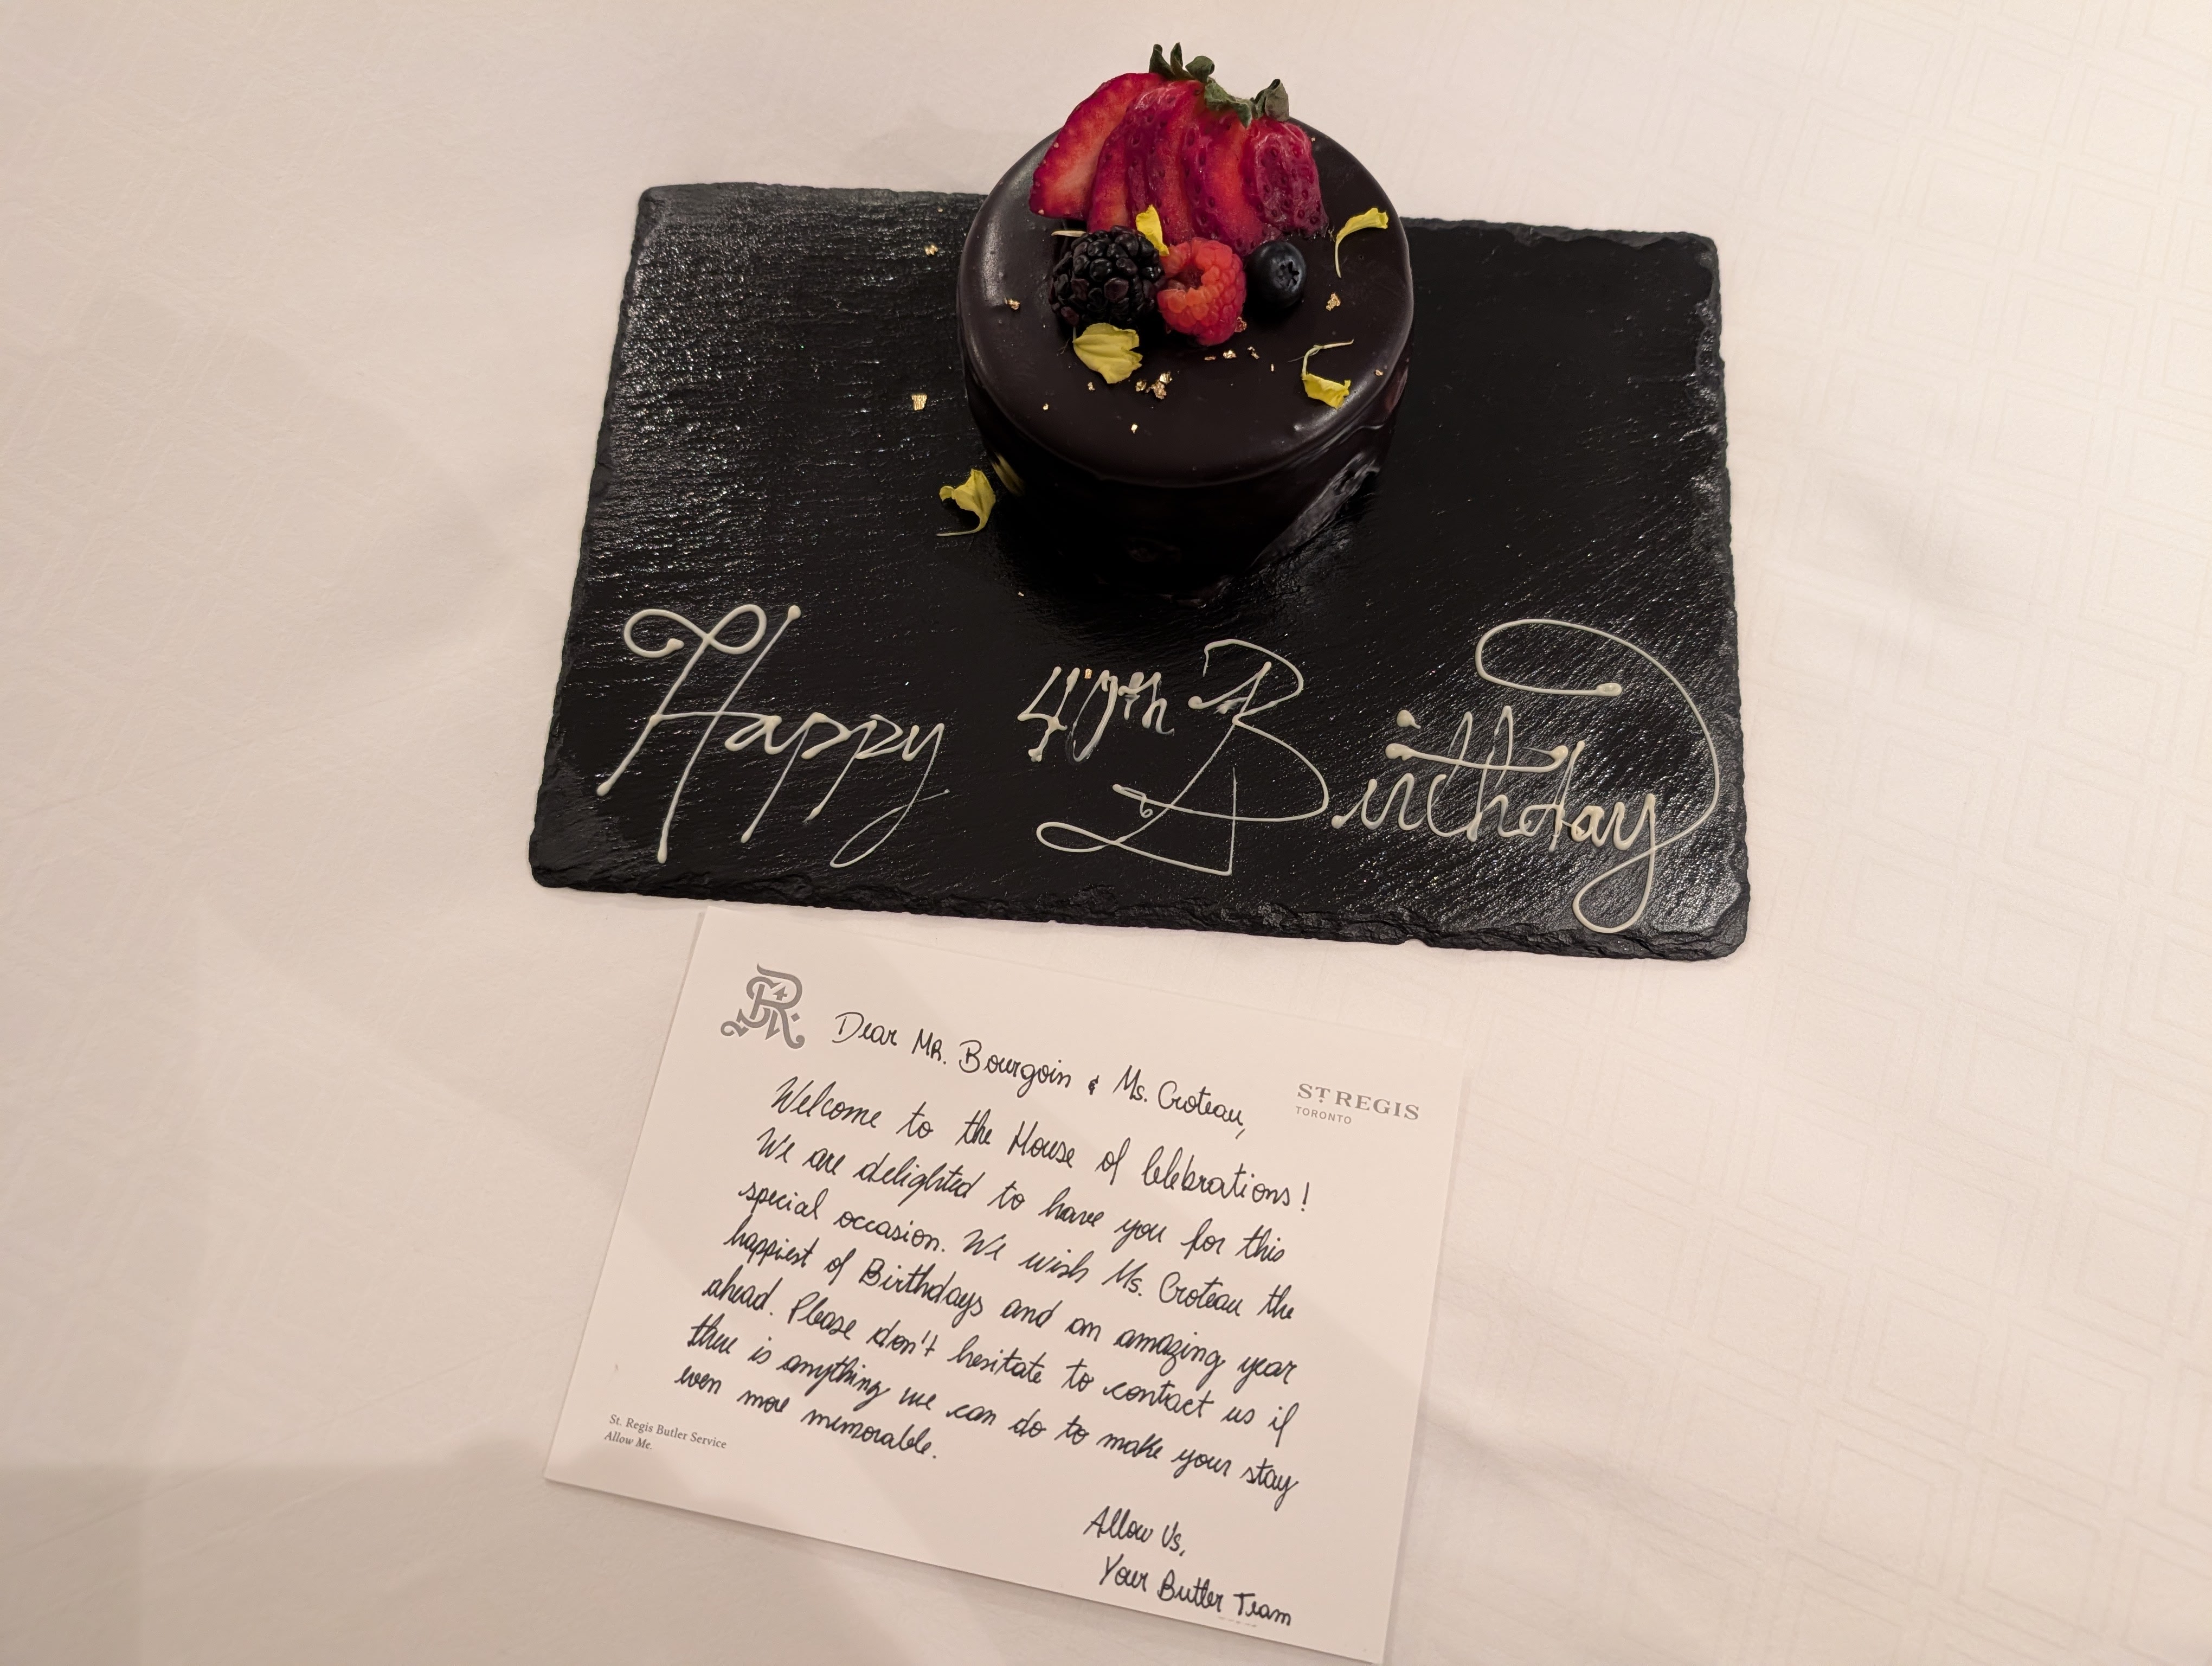 Happy 40th Birthday
Dear MR. Bourgoin & Ms. Croteau,
ST. REGIS
TORONTO
Welcome to the House of Celebrations!
We are delighted to have you for this
special occasion. We wish Ms. Croteau the
happiest of Birthdays and an amazing year
ahead. Please don't hesitate to contact us if
there is anything we can do to make your stay
even more memorable.
St. Regis Butler Service
Allow Me.
Allow Us,
Your Butler Team